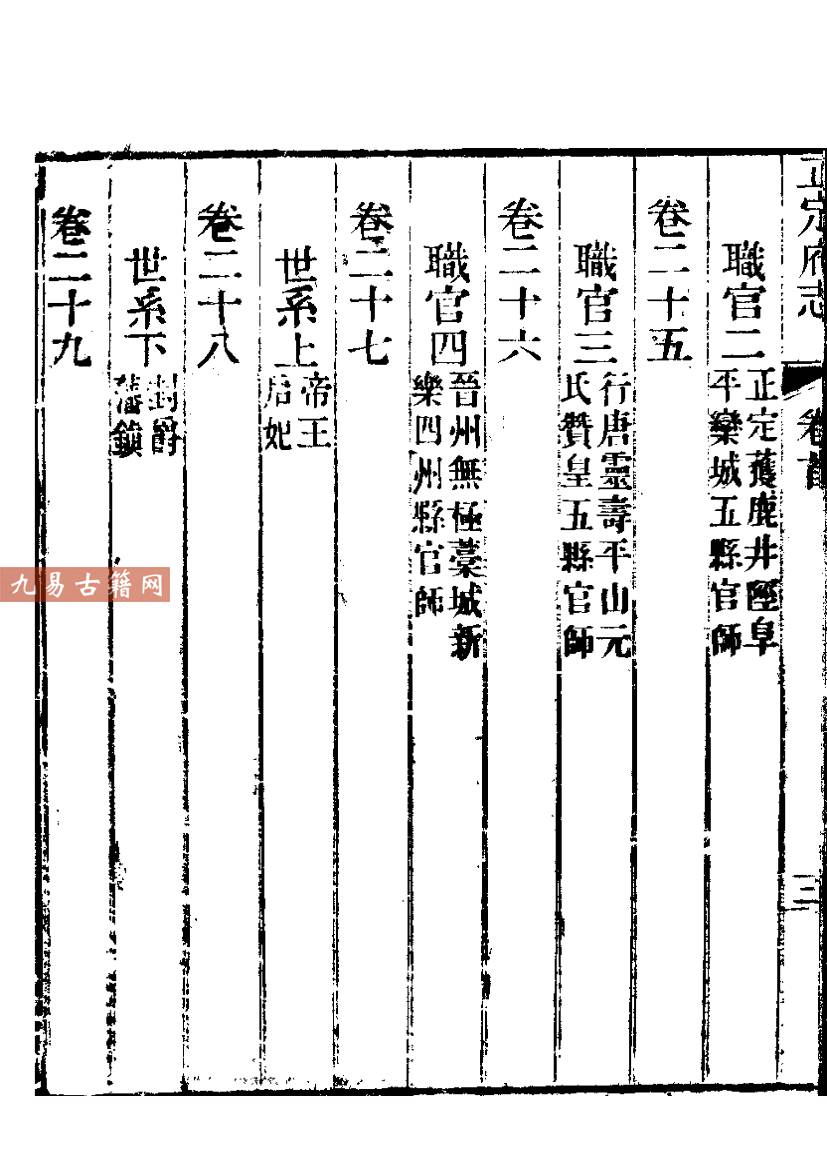 正定府志
卷首
三
職官二 正定獲鹿井陘阜
平欒城五縣官師
卷二十五
職官三 行唐靈壽平山元
氏贊皇五縣官師
卷二十六
職官四 晉州無極藁城新
樂四州縣官師
卷二十七
世系上 帝王
后妃
卷二十八
世系下 封爵
藩鎮
卷二十九
九易古籍网